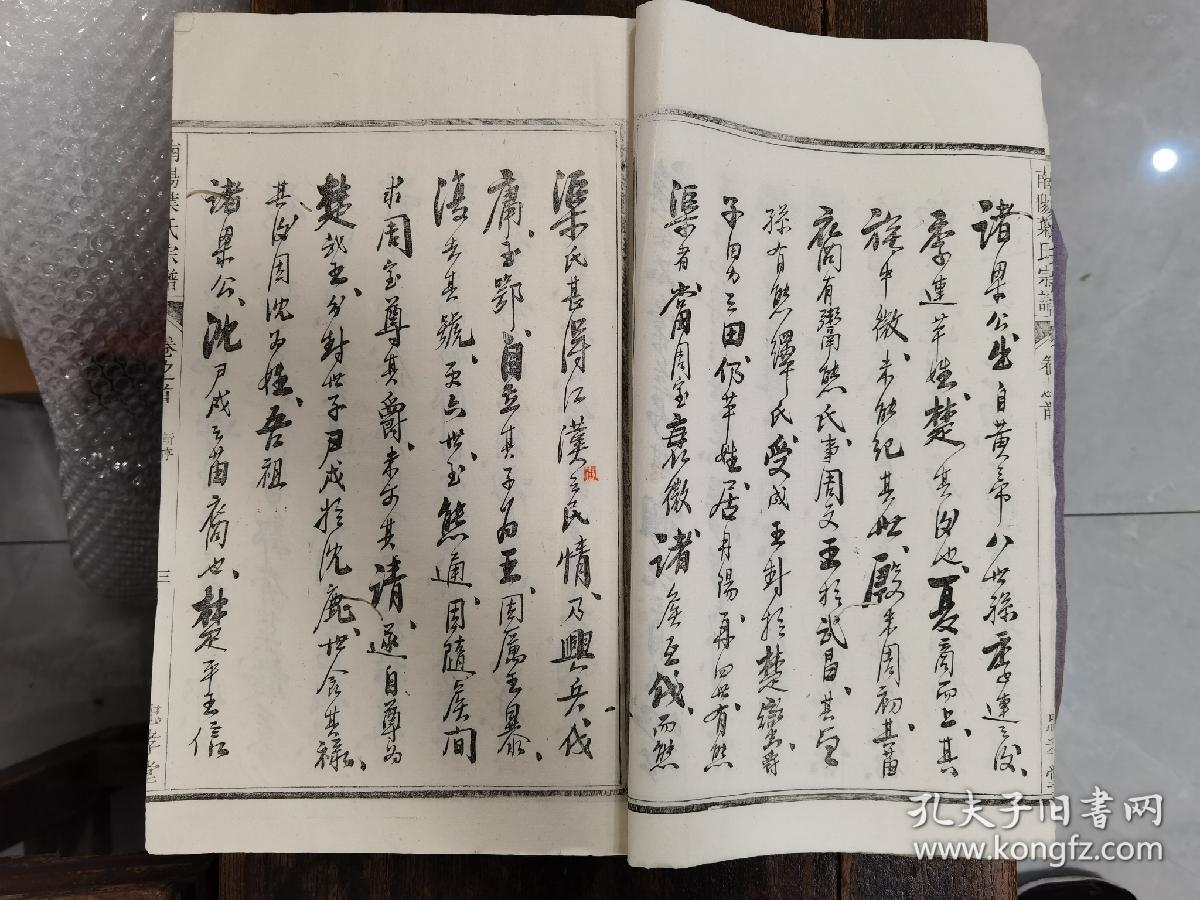 諸梁公出自黃帝八世孫季連之後、
季連芈姓、楚其後也、夏商而上、其
族中微、未能紀其世、殷末周初、其苗
裔有鬻熊氏、事周文王於武昌、其
孫有熊繹氏、受成王封於楚蠻、
子男之田、仍芈姓、居丹陽、再四世、有熊
渠者、當周室衰微、諸侯互伐、而熊
渠氏甚得江漢之民情、乃興兵伐
庸、至鄂、自立其子為王、因厲王暴、
復去其號、更六世、至熊通、因隨侯間
求周室尊其爵、未方其請、遂自尊為
楚武王、分封世子尹戍於沈鹿、世食其祿、
其後因沈為姓、吾祖
諸梁公、沈尹戍之苗裔也、楚平王信
南陽葉氏宗譜
卷之首
三
忠孝堂
南陽葉氏宗譜
卷之首
孔夫子旧书网
www.kongfz.com